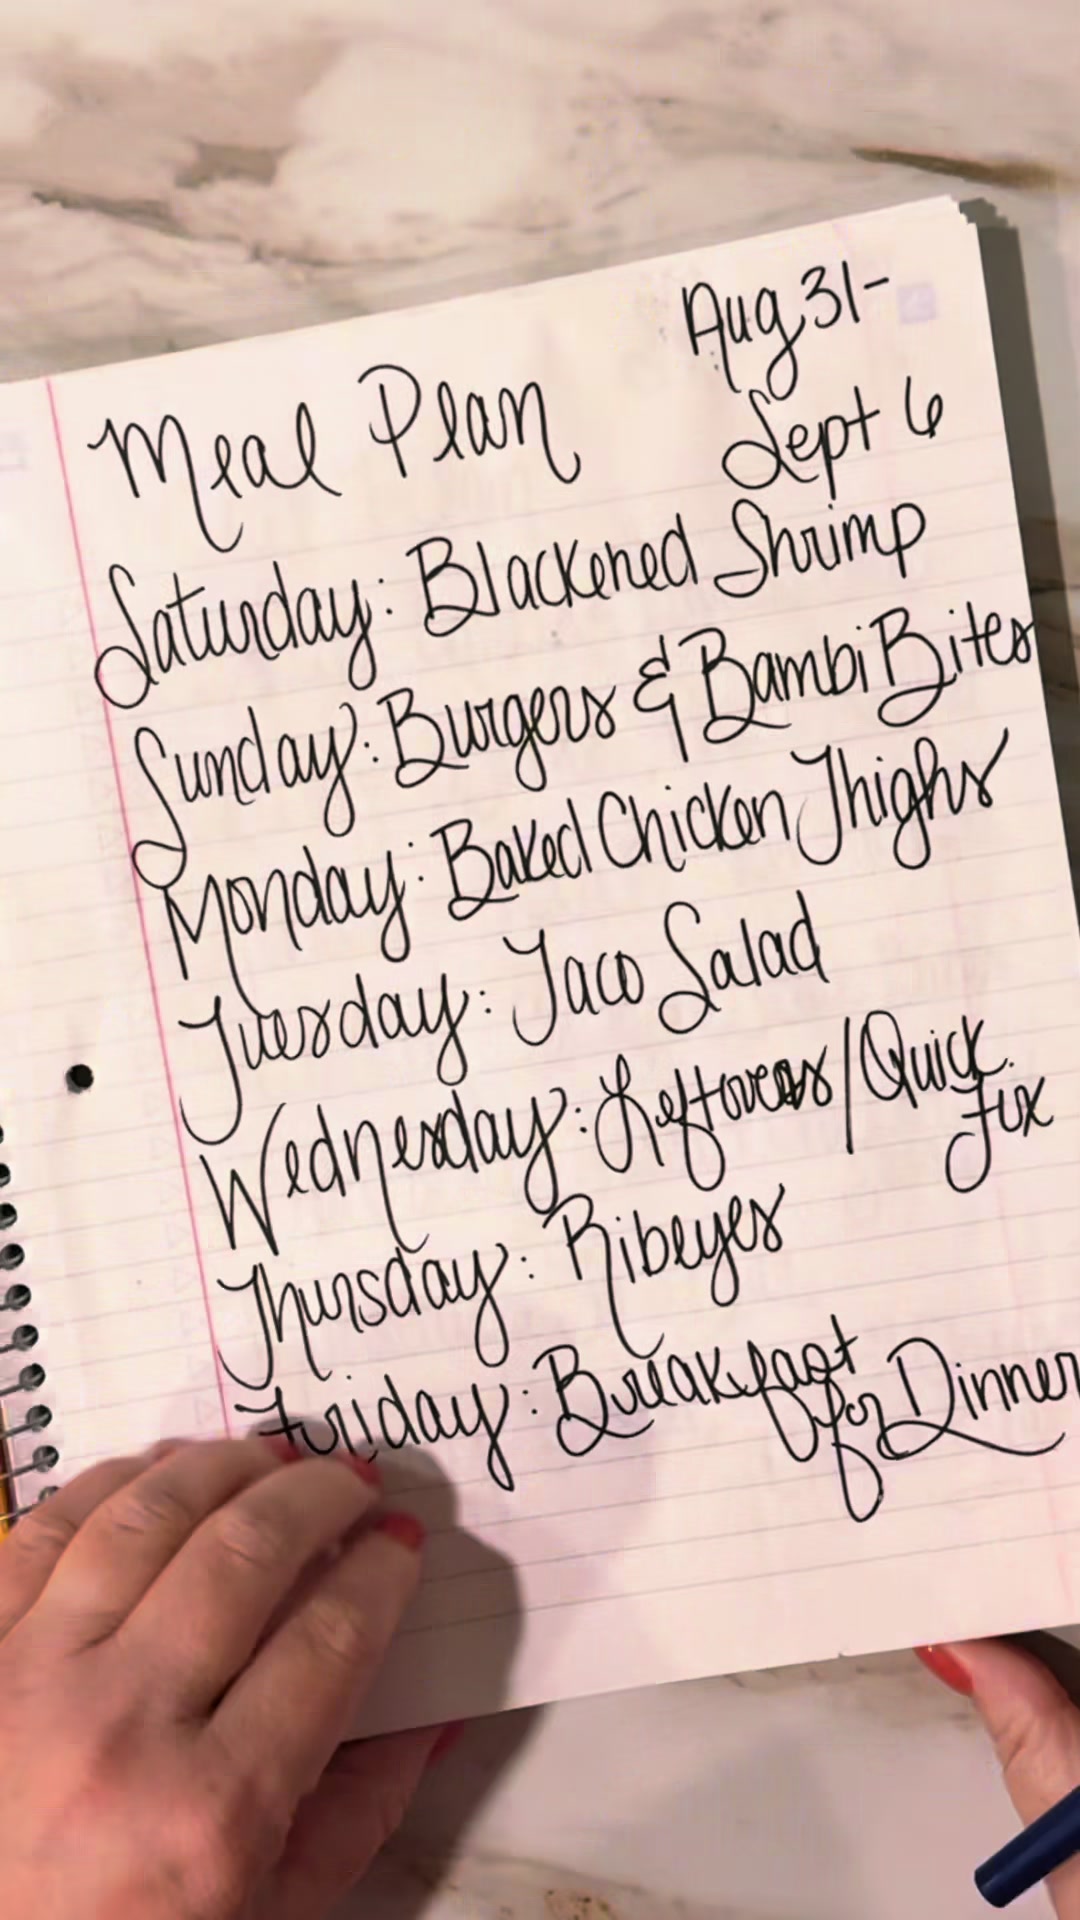 Aug 31-
Meal Plan Sept 6
Saturday: Blackened Shrimp
Sunday: Burgers & Bambi Bites
Monday: Baked Chicken Thighs
Tuesday: Taco Salad
Wednesday: Leftovers/Quick
Fix
Thursday: Ribeyes
Friday: Breakfast
for Dinner